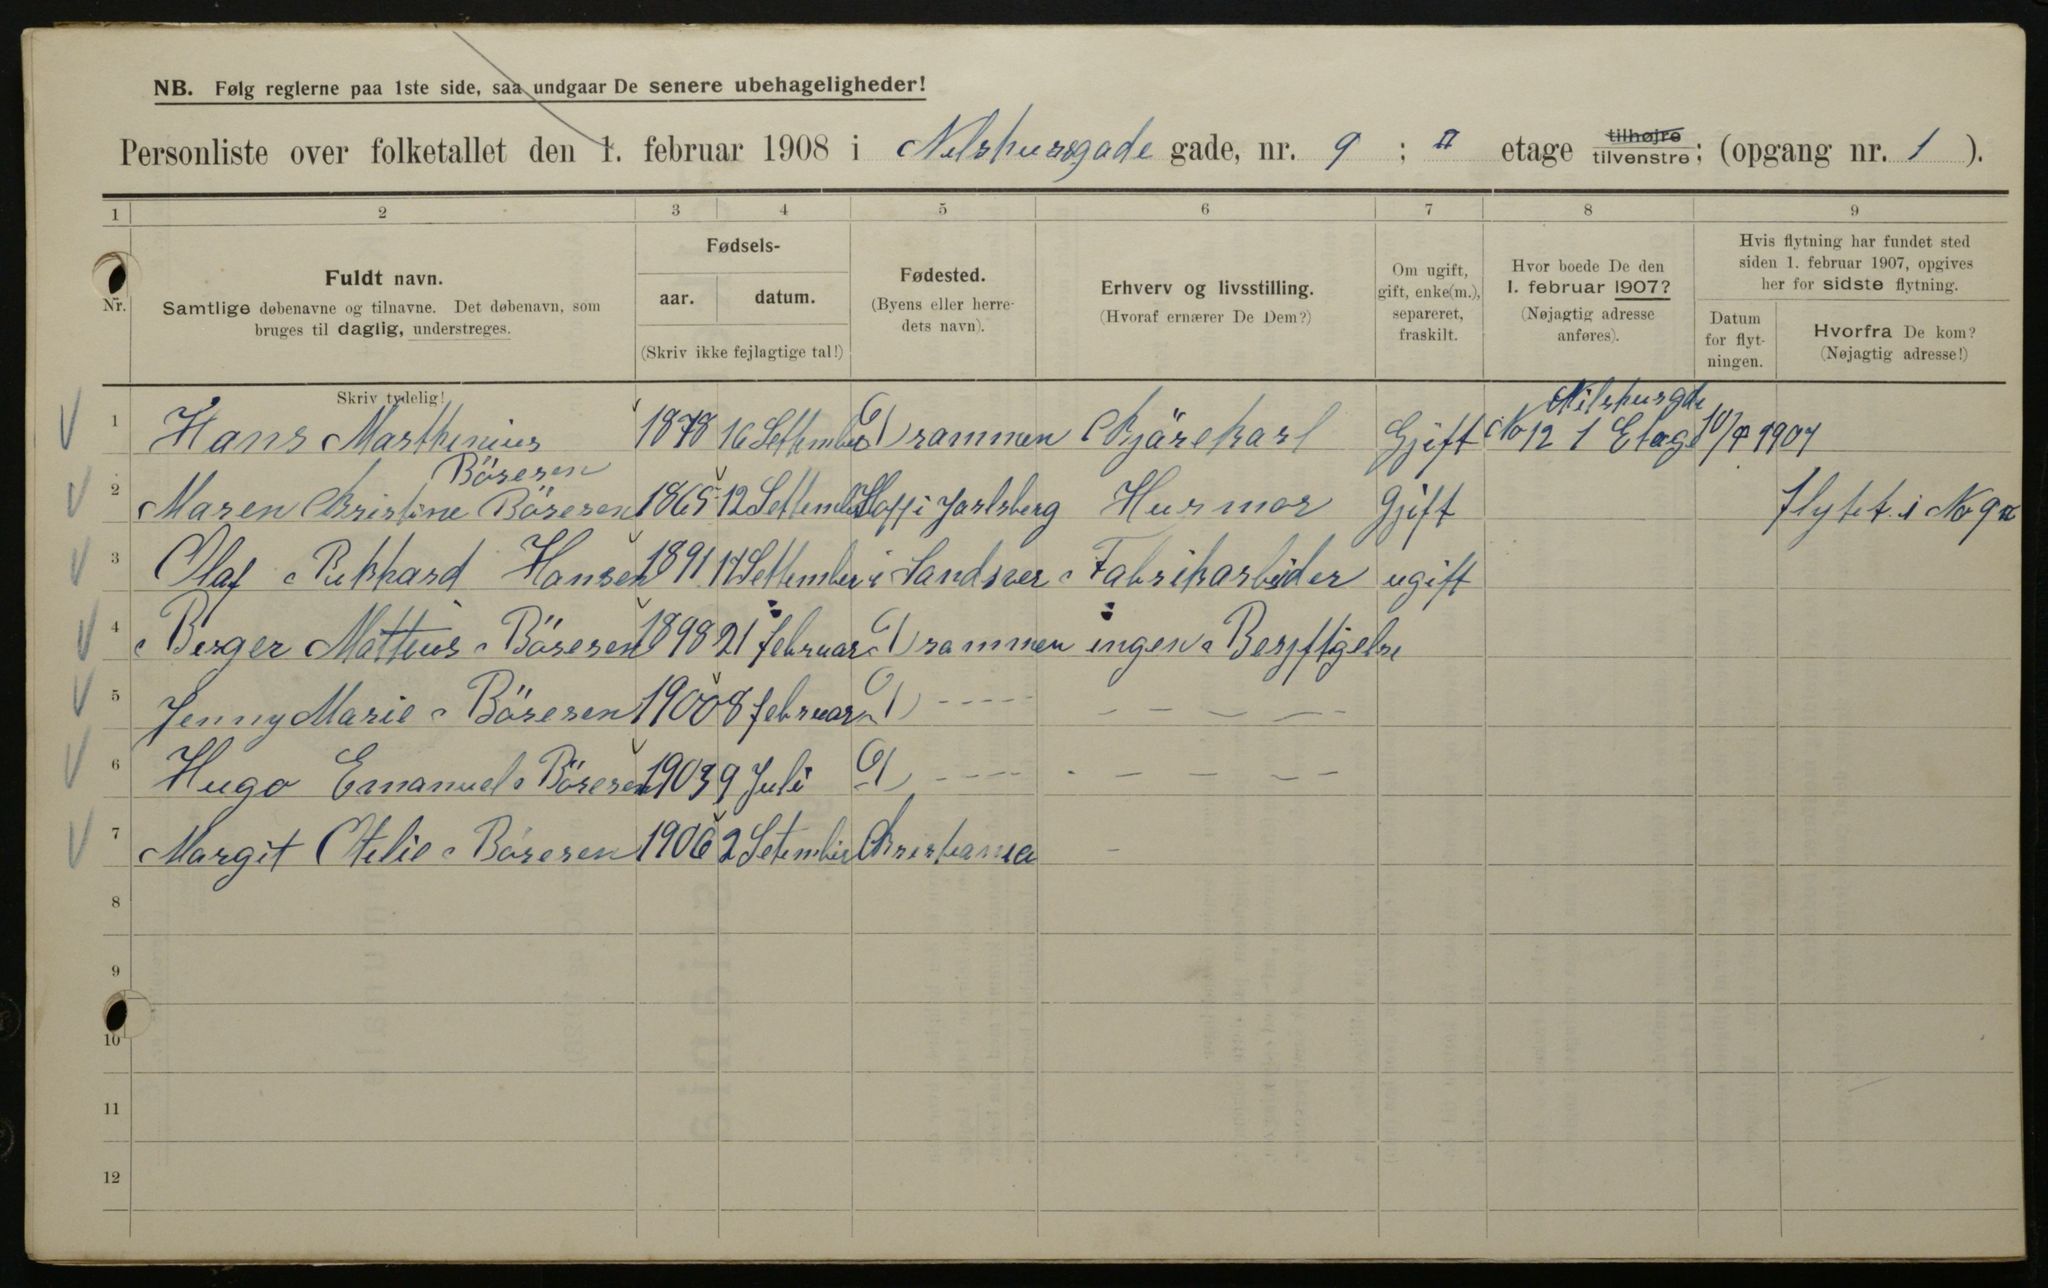 NB. Følg reglerne paa 1ste side, saa undgaar De senere ubehageligheder!
Personliste over folketallet den 1. februar 1908 i Nelshusgade gade, nr. 9 ; II etage tilhøjre tilvenstre ; (opgang nr. 1 ).
1 2 3 4 5 6 7 8 9
Nr.
Fuldt navn.
Samtlige døbenavne og tilnavne. Det døbenavn, som
bruges til daglig, understreges.
Fødsels-
aar. datum.
(Skriv ikke fejlagtige tal!)
Fødested.
(Byens eller herre-
dets navn).
Erhverv og livsstilling.
(Hvoraf ernærer De Dem?)
Om ugift,
gift, enke(m.),
separeret,
fraskilt.
Hvor boede De den
1. februar 1907?
(Nøjagtig adresse
anføres).
Hvis flytning har fundet sted
siden 1. februar 1907, opgives
her for sidste flytning.
Datum
for flyt-
ningen.
Hvorfra De kom?
(Nøjagtig adresse!)
Skriv tydelig!
1 Hans Marthinius Böresen 1878 16 Settember Drammen Kjörekarl Gjift Nilshusgde No 12 1 Etage 10/4 1907
2 Maren Kristine Böresen 1865 12 Settember i Jarlsberg Husmor Gjift flytet i No 9
3 Olaf Rikhard Hansen 1891 17 Settember i Sandsver Fabrikarbeider ugift
4 Birger Mattius Böresen 1898 21 februar Drammen ingen
5 Jenny Marie Böresen 1900 8 februar D ---- — — — —
6 Hugo Emanuel Böresen 1903 9 Juli D ---- - — — — —
7 Margit Otelie Böresen 1906 2 Setember Kristiania -
8
9
10
11
12